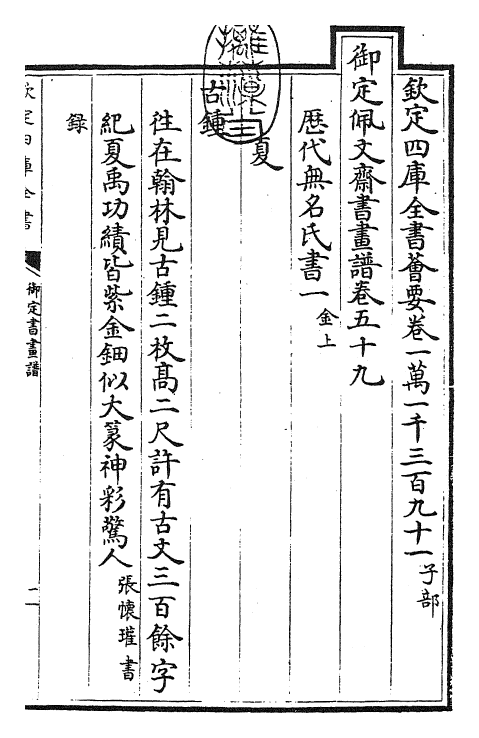 欽定四庫全書薈要卷一萬一千三百九十一 子部
御定佩文齋書畫譜卷五十九
歷代無名氏書一 金上
夏
古鍾
往在翰林見古鍾二枚高二尺許有古文三百餘字
紀夏禹功績皆紫金鈿似大篆神彩驚人 張懷瓘書
録
欽定四庫全書
御定書畫譜